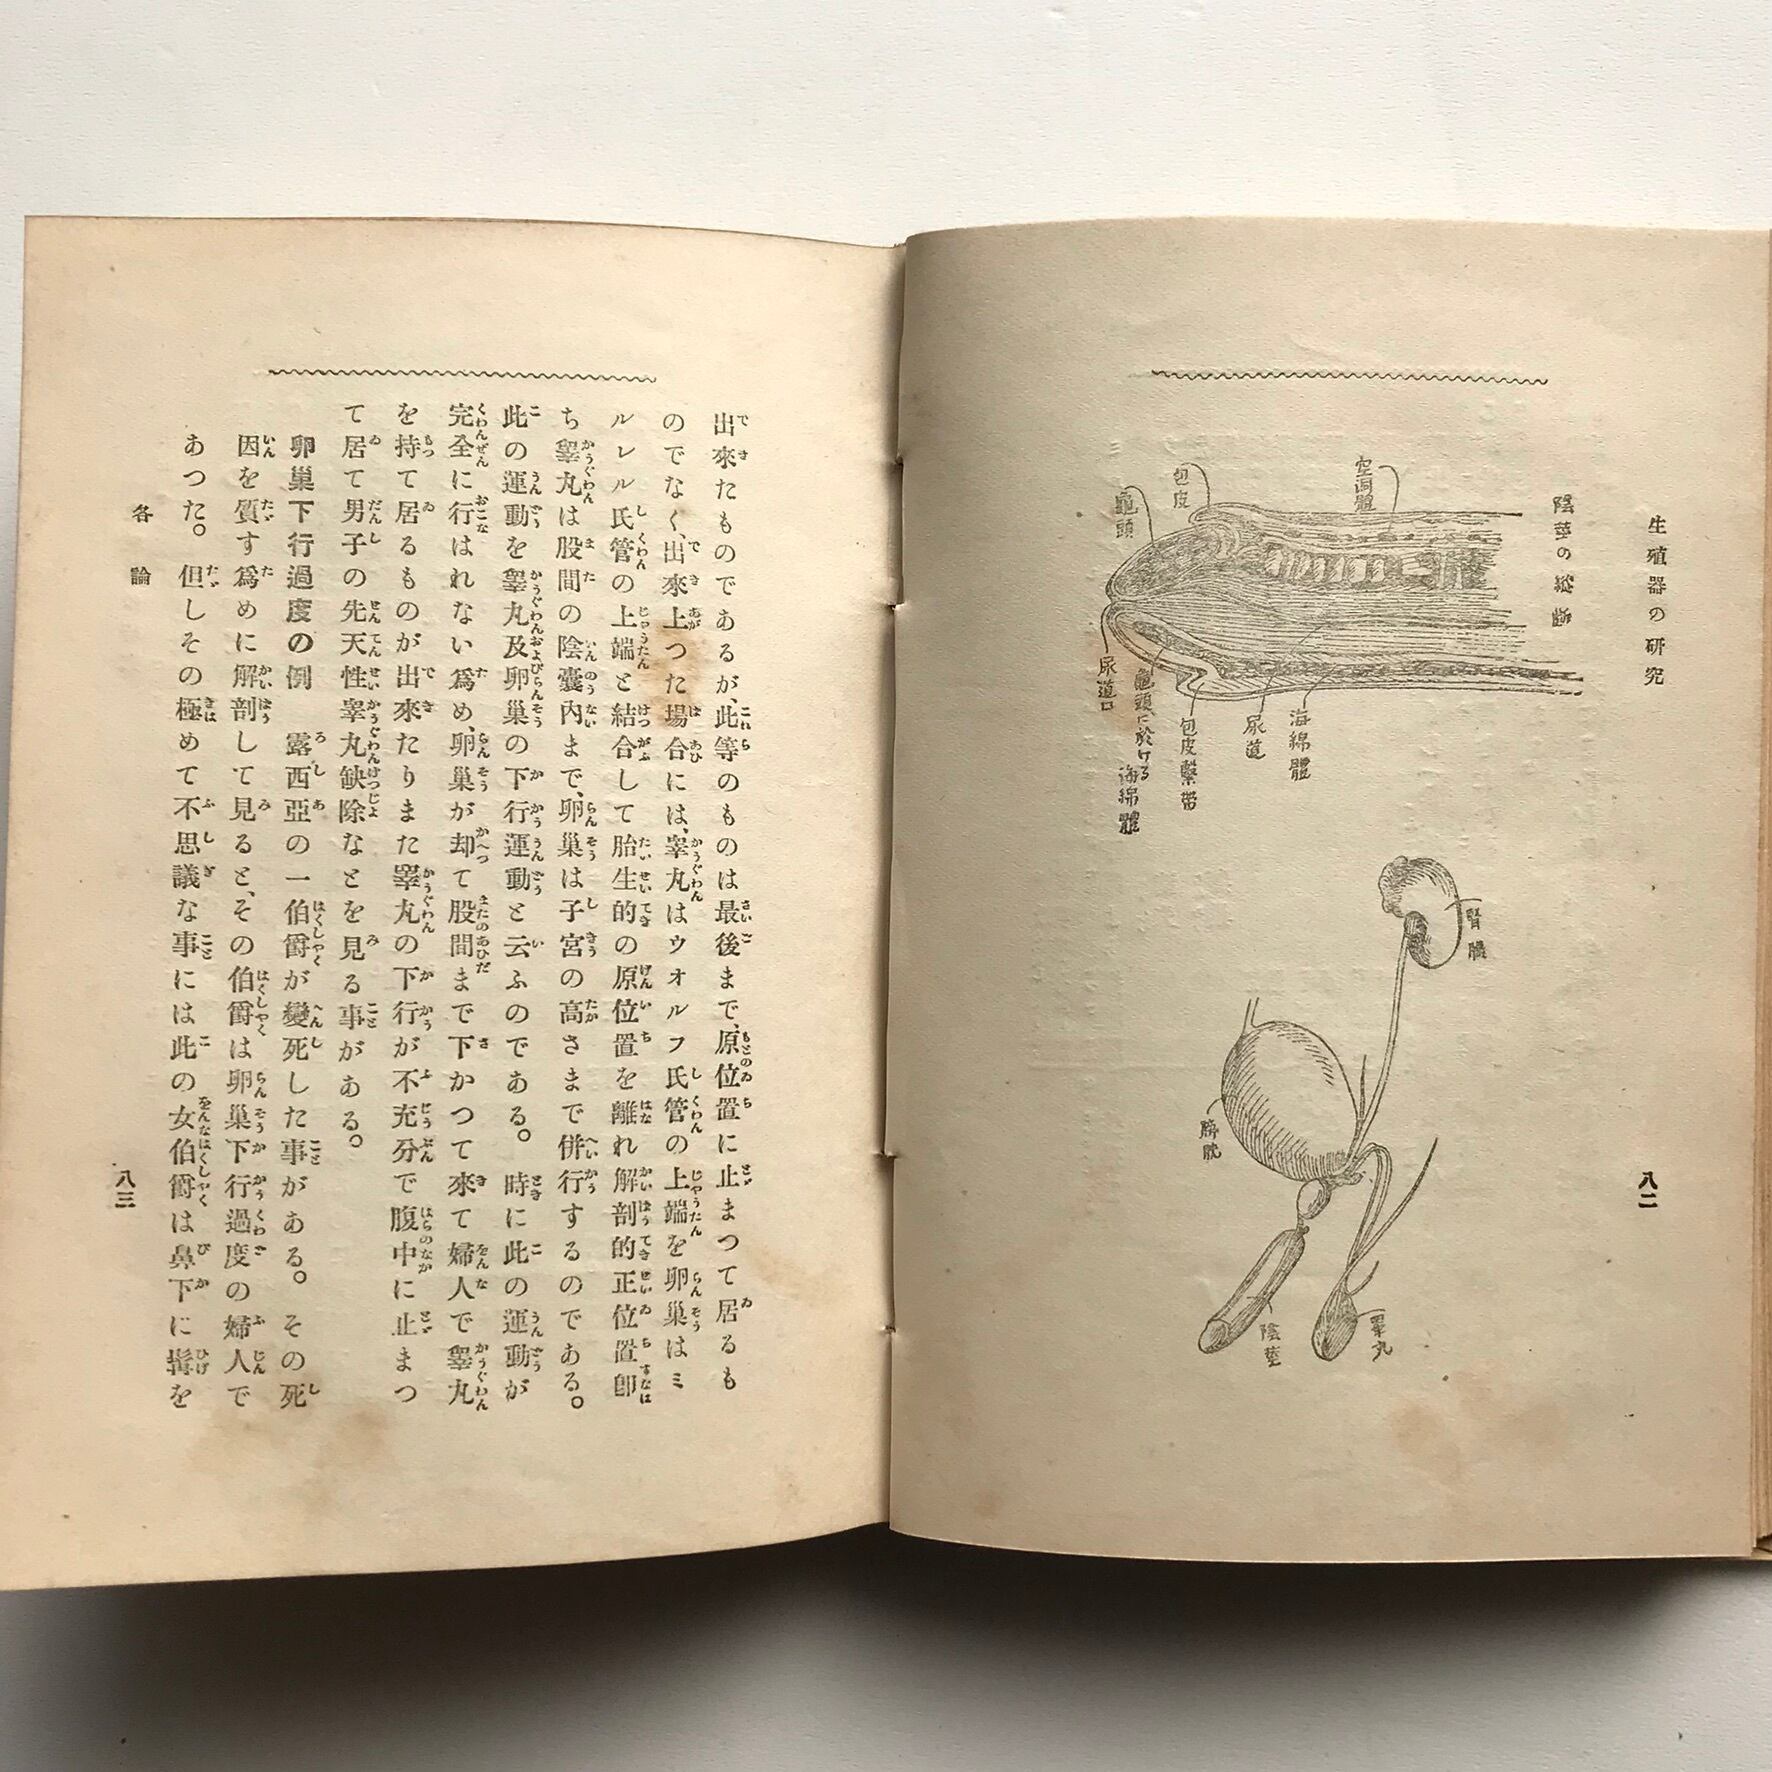 生殖器の研究
八二
陰莖の縱斷
空洞體
包皮
龜頭
尿道口
龜頭に於ける
海綿體
包皮繫帶
尿道
海綿體
腎臟
膀胱
陰莖
睾丸
出來たものであるが、此等のものは最後まで、原位置に止まつて居るも
のでなく、出來上つた場合には、睾丸はウオルフ氏管の上端を卵巢はミ
ルレル氏管の上端と結合して胎生的の原位置を離れ解剖的正位置卽
ち睾丸は股間の陰囊內まで、卵巢は子宮の高さまで併行するのである。
此の運動を睾丸及卵巢の下行運動と云ふのである。時に此の運動が
完全に行はれない爲め、卵巢が却て股間まで下かつて來て婦人で睾丸
を持て居るものが出來たりまた睾丸の下行が不充分で腹中に止まつ
て居て男子の先天性睾丸缺除なとを見る事がある。
卵巢下行過度の例　露西亞の一伯爵が變死した事がある。その死
因を質す爲めに解剖して見ると、その伯爵は卵巢下行過度の婦人で
あつた。但しその極めて不思議な事には此の女伯爵は鼻下に髯を
各論
八三